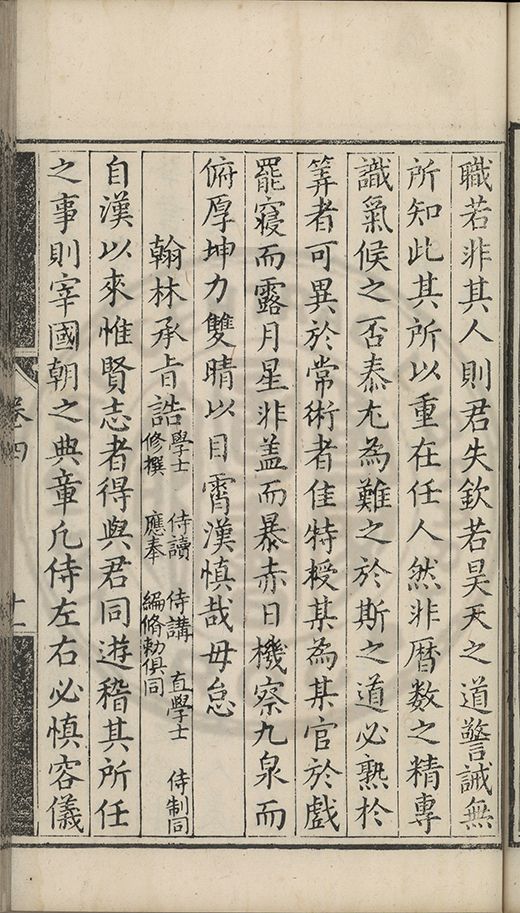 職若非其人則君失欽若昊天之道警誡無
所知此其所以重在任人然非曆数之精專
識氣候之否泰尤為難之於斯之道必熟於
筭者可異於常術者佳特授某為某官於戲
罷寢而露月星非盖而暴赤日機察九泉而
俯厚坤力雙睛以目霄漢慎哉毋怠
翰林承旨誥學士 侍讀 侍講 直學士 侍制同
修撰 應奉 編脩勅俱同
自漢以來惟賢志者得與君同遊稽其所任
之事則宰國朝之典章凢侍左右必慎容儀
卷四
十一